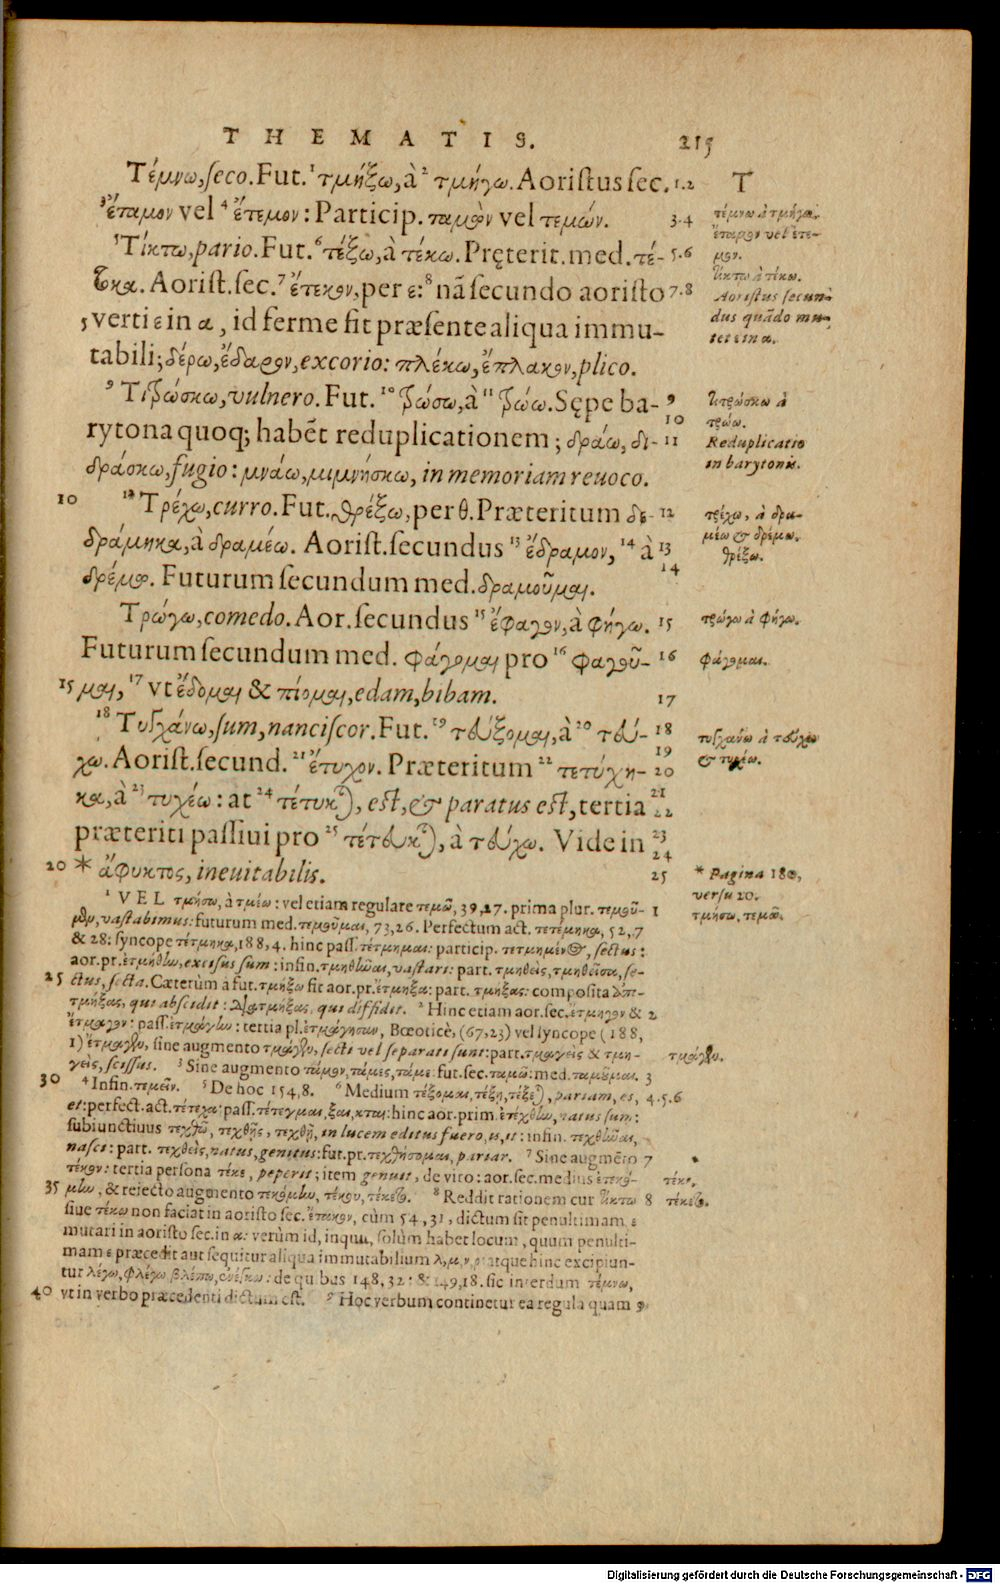 THEMATIS. 215
Τέμνω, ſeco. Fut. ¹ τμήξω, à ² τμήγω. Aoriſtus ſec. 1.2 T
³ ἔταμον vel ⁴ ἔτεμον: Particip. ταμὼν vel τεμών. 3.4 τέμνω à τμήγω.
ἔταμον vel ἔτε-
⁵ Τίκτω, pario. Fut. ⁶ τέξω, à τέκω. Pręterit. med. τέ- 5.6 μον.
τοκα. Aoriſt. ſec. ⁷ ἔτεκον, per ε: ⁸ nã ſecundo aoriſto 7.8 τίκτω à τέκω.
Aoriſtus ſecun-
5 verti ε in α, id ferme fit præſente aliqua immu- dus quãdo mu-
tet ε in α.
tabili; δέρω, ἔδαρον, excorio: πλέκω, ἔπλακον, plico.
⁹ Τιτρώσκω, vulnero. Fut. ¹⁰ τρώσω, à ¹¹ τρώω. Sępe ba- 9 τιτρώσκω à
10 τρώω.
rytona quoq; habẽt reduplicationem; δράω, δι- 11 Reduplicatio
in barytonis.
δράσκω, fugio: μνάω, μιμνήσκω, in memoriam reuoco.
10 ¹² Τρέχω, curro. Fut. θρέξω, per θ. Præteritum δε- 12 τρέχω, à δρα-
μέω & δρέμω.
δράμηκα, à δραμέω. Aoriſt. ſecundus ¹³ ἔδραμον, ¹⁴ à 13 θρέξω.
14
δρέμω. Futurum ſecundum med. δραμοῦμαι.
Τρώγω, comedo. Aor. ſecundus ¹⁵ ἔφαγον, à φήγω. 15 τρώγω à φήγω.
Futurum ſecundum med. φάγομαι pro ¹⁶ φαγοῦ- 16 φάγομαι.
15 μαι, ¹⁷ vt ἔδομαι & πίομαι, edam, bibam. 17
¹⁸ Τυγχάνω, ſum, nanciſcor. Fut. ¹⁹ τεύξομαι, à ²⁰ τεύ- 18 τυγχάνω à τεύχω
19 & τυχέω.
χω. Aoriſt. ſecund. ²¹ ἔτυχον. Præteritum ²² τετύχη- 20
κα, à ²³ τυχέω: at ²⁴ τέτυκται, est, & paratus est, tertia 21
22
præteriti paſſiui pro ²⁵ τέτευκται, à τεύχω. Vide in 23
24
20 * ἄφυκτος, ineuitabilis. 25 * Pagina 180,
verſu 20.
¹ VEL τμήσω, à τμέω: vel etiam regulare τεμῶ, 39,27. prima plur. τεμοῦ- 1 τμήσω, τεμῶ.
μεν, vaſtabimus: futurum med. τεμοῦμαι, 73,26. Perfectum act. τετέμηκα, 52,7
& 28: ſyncope τέτμηκα, 188,4. hinc paſſ. τέτμημαι: particip. τετμημένος, ſectus:
aor. pr. ἐτμήθην, exciſus ſum: infin. τμηθῆναι, vaſtari: part. τμηθεὶς, τμηθεῖσα, ſe-
25 ctus, ſecta. Cæterùm à fut. τμήξω fit aor. pr. ἔτμηξα: part. τμήξας: compoſita ἀπο-
τμήξας, qui abſcidit: διατμήξας, qui diffidit. ² Hinc etiam aor. ſec. ἔτμηγον & 2
ἔτμαγον: paſſ. ἐτμάγην: tertia pl. ἐτμάγησαν, Bœoticè, (67,23) vel ſyncope (188,
1) ἔτμαγεν, ſine augmento τμάγεν, ſecti vel ſeparati ſunt: part. τμαγεὶς & τμη- τμάγεν.
γεὶς, ſciſſus. ³ Sine augmento τάμον, τάμες, τάμε: fut. ſec. ταμῶ: med. ταμοῦμαι. 3
30 ⁴ Infin. τεμεῖν. ⁵ De hoc 154,8. ⁶ Medium τέξομαι, τέξῃ, τέξεται, pariam, es, 4.5.6
et: perfect. act. τέτεχα: paſſ. τέτεγμαι, ξαι, κται: hinc aor. prim. ἐτέχθην, natus ſum:
ſubiunctiuus τεχθῶ, τεχθῇς, τεχθῇ, in lucem editus fuero, is, it: infin. τεχθῆναι,
naſci: part. τεχθεὶς, natus, genitus: fut. pr. τεχθήσομαι, pariar. ⁷ Sine augmẽto 7
τέκον: tertia perſona τέκε, peperit; item genuit, de viro: aor. ſec. medius ἐτεκό- τέκε.
35 μην, & reiecto augmento τεκόμην, τέκου, τέκετο. ⁸ Reddit rationem cur τίκτω 8 τέκετο.
ſiue τέκω non faciat in aoriſto ſec. ἔτακον, cùm 54,31, dictum ſit penultimam ε
mutari in aoriſto ſec. in α: verùm id, inquit, ſolùm habet locum, quum penulti-
mam ε præcedit aut ſequitur aliqua immutabilium λ, μ, ν, ρ: atque hinc excipiun-
tur λέγω, φλέγω, βλέπω, de quibus 148,32: & 149,18. ſic interdum τέμνω,
40 vt in verbo præcedenti dictum eſt. ⁹ Hoc verbum continetur ea regula quam 9
Digitalisierung gefördert durch die Deutsche Forschungsgemeinschaft - DFG